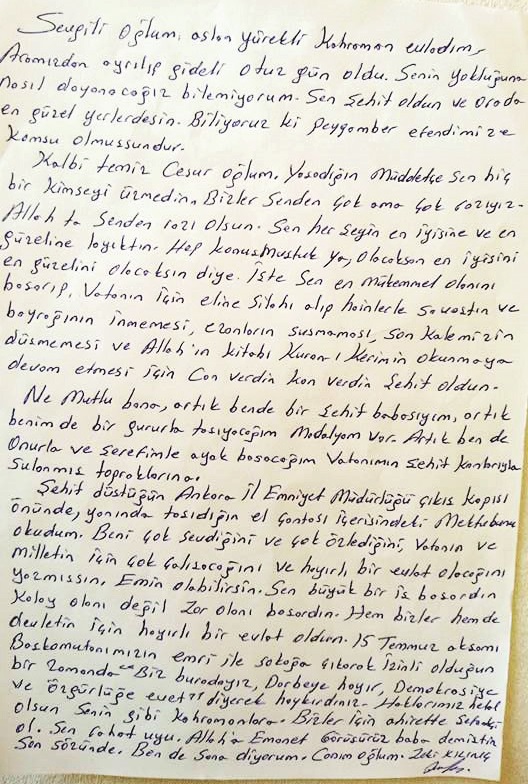 Sevgili Oğlum, aslan yürekli Kahraman evladım,
Aramızdan ayrılıp gideli otuz gün oldu. Senin yokluğuna
nasıl dayanacağız bilemiyorum. Sen Şehit oldun ve Orada
en güzel yerlerdesin. Biliyoruz ki Peygamber efendimize
Komsu olmussundur.
Kalbi temiz Cesur oğlum. Yasadığın Müddetçe Sen hiç
bir Kimseyi üzmedin. Bizler Senden Çok ama Çok razıyız.
Allah ta Senden razı olsun. Sen her Şeyin en iyisine ve en
güzeline layıktın. Hep konusmustuk ya, olacaksan en iyisini
en güzelini olacaksın diye. İşte Sen en mükemmel olanını
basarıp, Vatanın için eline Silahı alıp hainlerle savastın ve
bayrağının inmemesi, ezanların susmaması, Son Kalemizin
düsmemesi ve Allah'ın kitabı Kuran-ı Kerimin okunmaya
devam etmesi için Can verdin kan verdin Şehit oldun.
Ne Mutlu bana, artık bende bir Şehit babasıyım, artık
benim de bir gururla tasıyacağım Madalyam var. Artık ben de
Onurla ve Şerefimle ayak basacağım Vatanımın Şehit kanlarıyla
Sulanmıs topraklarına.
Şehit düstüğün Ankara İl Emniyet Müdürlüğü çıkıs kapısı
önünde, yanında tasıdığın el Çantası içerisindeki Mektubunu
okudum. Beni çok sevdiğini ve çok özlediğini, Vatanın ve
milletin için çok çalısacağını ve hayırlı bir evlat olacağını
yazmıssın. Emin olabilirsin. Sen büyük bir is basardın
Kolay olanı değil Zor olanı basardın. Hem bizler hemde
devletin için hayırlı bir evlat oldun. 15 Temmuz aksamı
Baskomutanımızın emri ile sokağa çıkarak izinli olduğun
bir zamanda "Biz buradayız, Darbeye hayır, Demokrasiye
ve özgürlüğe evet" diyerek haykırdınız. Haklarımız helal
olsun Senin gibi Kahramanlara. Bizler için ahirette Sefaatçi
ol. Sen rahat uyu. Allah'a Emanet Görüsürüz baba demistin
Son sözünde. Ben de Sana diyorum. Canım oğlum. Zeki KILINÇ